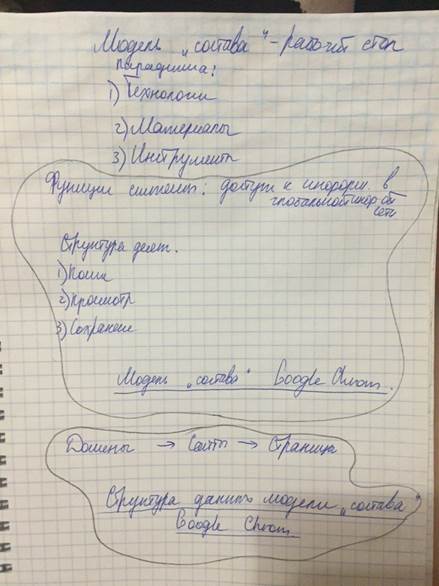 Модель „состава“ - рабочий стол
парадигма:
1) Технологии
2) Материалы
3) Инструменты
Функции системы: доступ к информ. в
глобальной инфор.
сети
Структура деят.
1) Поиск
2) Просмотр
3) Сохранение
Модель „состава“ Google Chrom.
Домены → Сайты → Страницы
Структура данных модели „состава“
Google Chrom